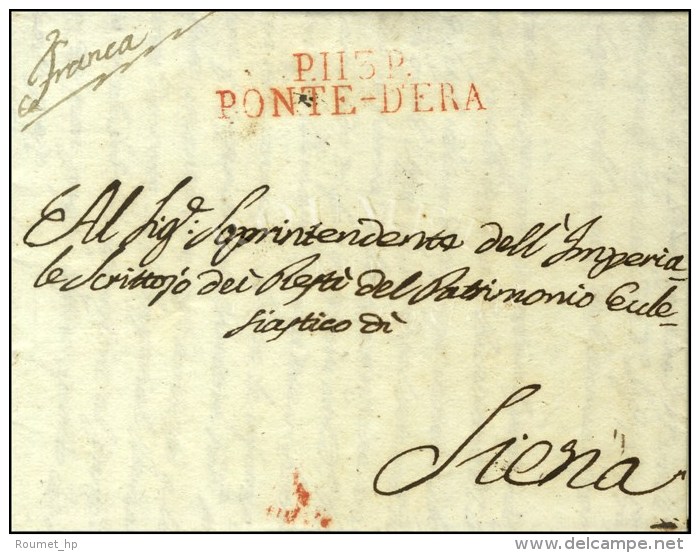 Franca
P.113 P.
PONTE-D'ERA
Al Sig.e Soprintendente dell'Imperia-
le Scrittojo dei Resti del Patrimonio Eccle-
siastico di
Siena
Roumet_hp
delcampe.net